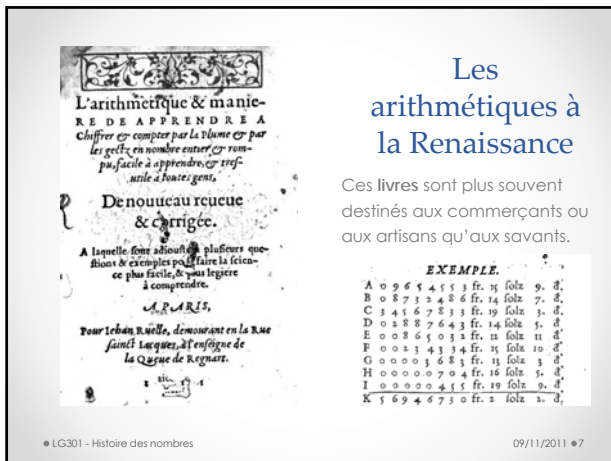 L'arithmetique & manie-
RE DE APPRENDRE A
Chiffrer & compter par la Plume & par
les gectz en nombre entier & rom-
pu, facile à apprendre, & tres-
utile à toutes gens,
De nouueau reueue
& corrigée.
A laquelle sont adioustés plusieurs que-
stions & exemples pour faire la scien-
ce plus facile, & plus legiere
à comprendre.
A PARIS,
Pour Iehan Ruelle, demourant en la Rue
sainct Iacques, à l'enseigne de
la Queue de Regnart.
Les
arithmétiques à
la Renaissance
Ces livres sont plus souvent
destinés aux commerçants ou
aux artisans qu'aux savants.
EXEMPLE.
A 0 9 6 5 4 5 5 3 fr. 15 solz 9. d.
B 0 8 7 3 2 4 8 6 fr. 14 solz 7. d.
C 3 4 5 6 7 8 3 3 fr. 19 solz 3. d.
D 0 2 8 8 7 6 4 3 fr. 14 solz 5. d.
E 0 0 8 6 5 0 3 2 fr. 12 solz 11 d.
F 0 0 2 3 4 3 3 4 fr. 15 solz 10 d.
G 0 0 0 0 3 6 8 3 fr. 13 solz 3 d.
H 0 0 0 0 0 7 0 4 fr. 16 solz 5. d.
I 0 0 0 0 0 4 5 5 fr. 19 solz 9. d.
K 5 6 9 4 6 7 3 0 fr. 2 solz 2. d.
LG301 - Histoire des nombres
09/11/2011 7